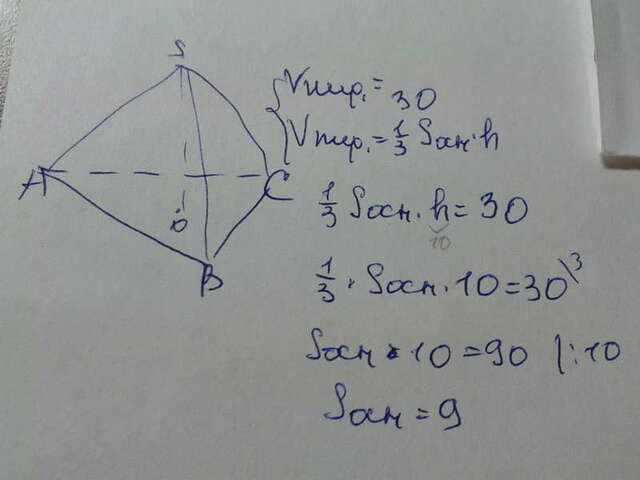 S
A
C
O
B
Vпир. = 30
Vпир. = 1/3 Sосн · h
1/3 Sосн · h = 30
10
1/3 · Sосн · 10 = 30 \3
Sосн · 10 = 90 |:10
Sосн = 9